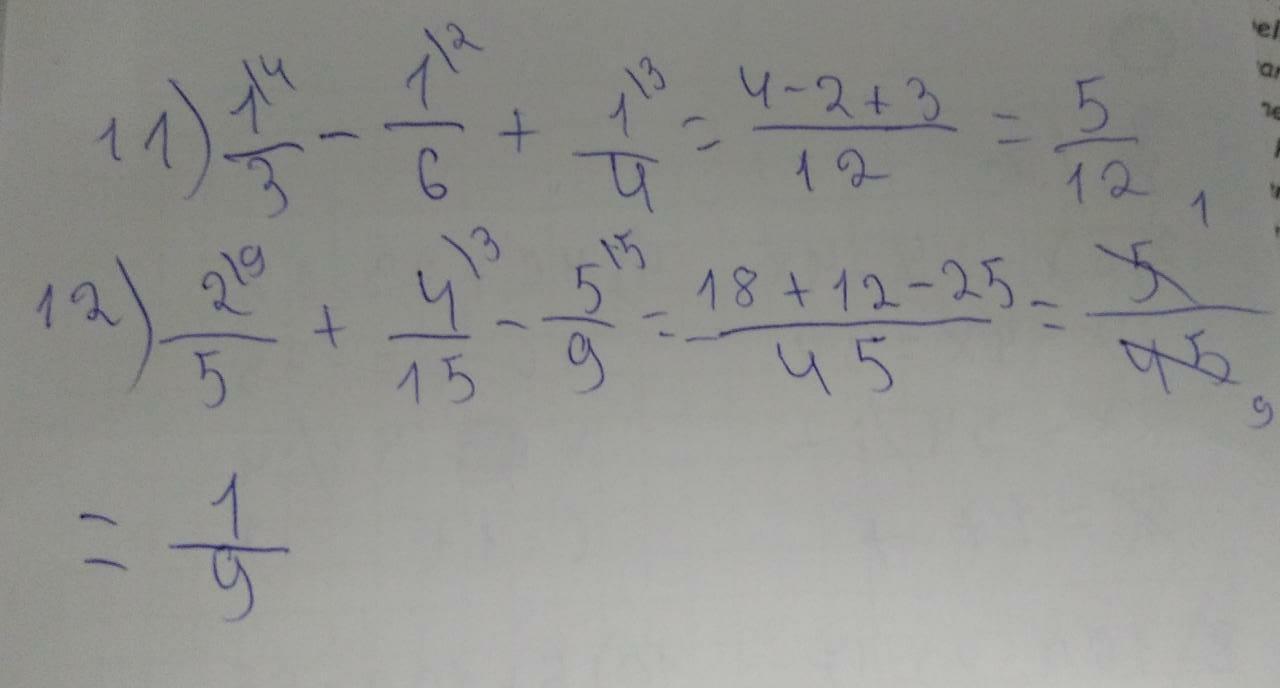 11) 1\4/3 - 1\2/6 + 1\3/4 = 4-2+3/12 = 5/12
12) 2\9/5 + 4\3/15 - 5\5/9 = 18+12-25/45 = 5 1/45 9
= 1/9